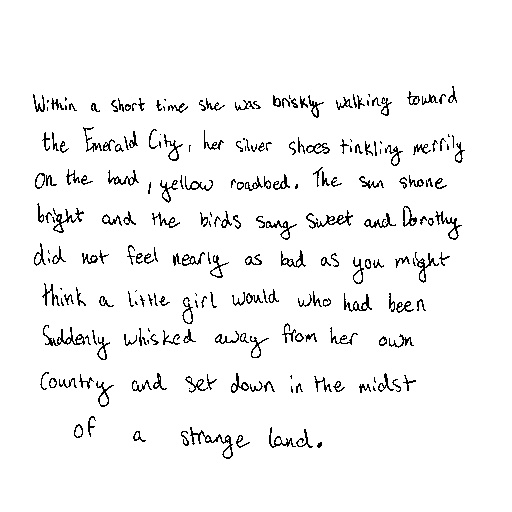 Within a short time she was briskly walking toward
the Emerald City, her silver shoes tinkling merrily
on the hard, yellow roadbed. The sun shone
bright and the birds sang sweet and Dorothy
did not feel nearly as bad as you might
think a little girl would who had been
suddenly whisked away from her own
country and set down in the midst
of a strange land.